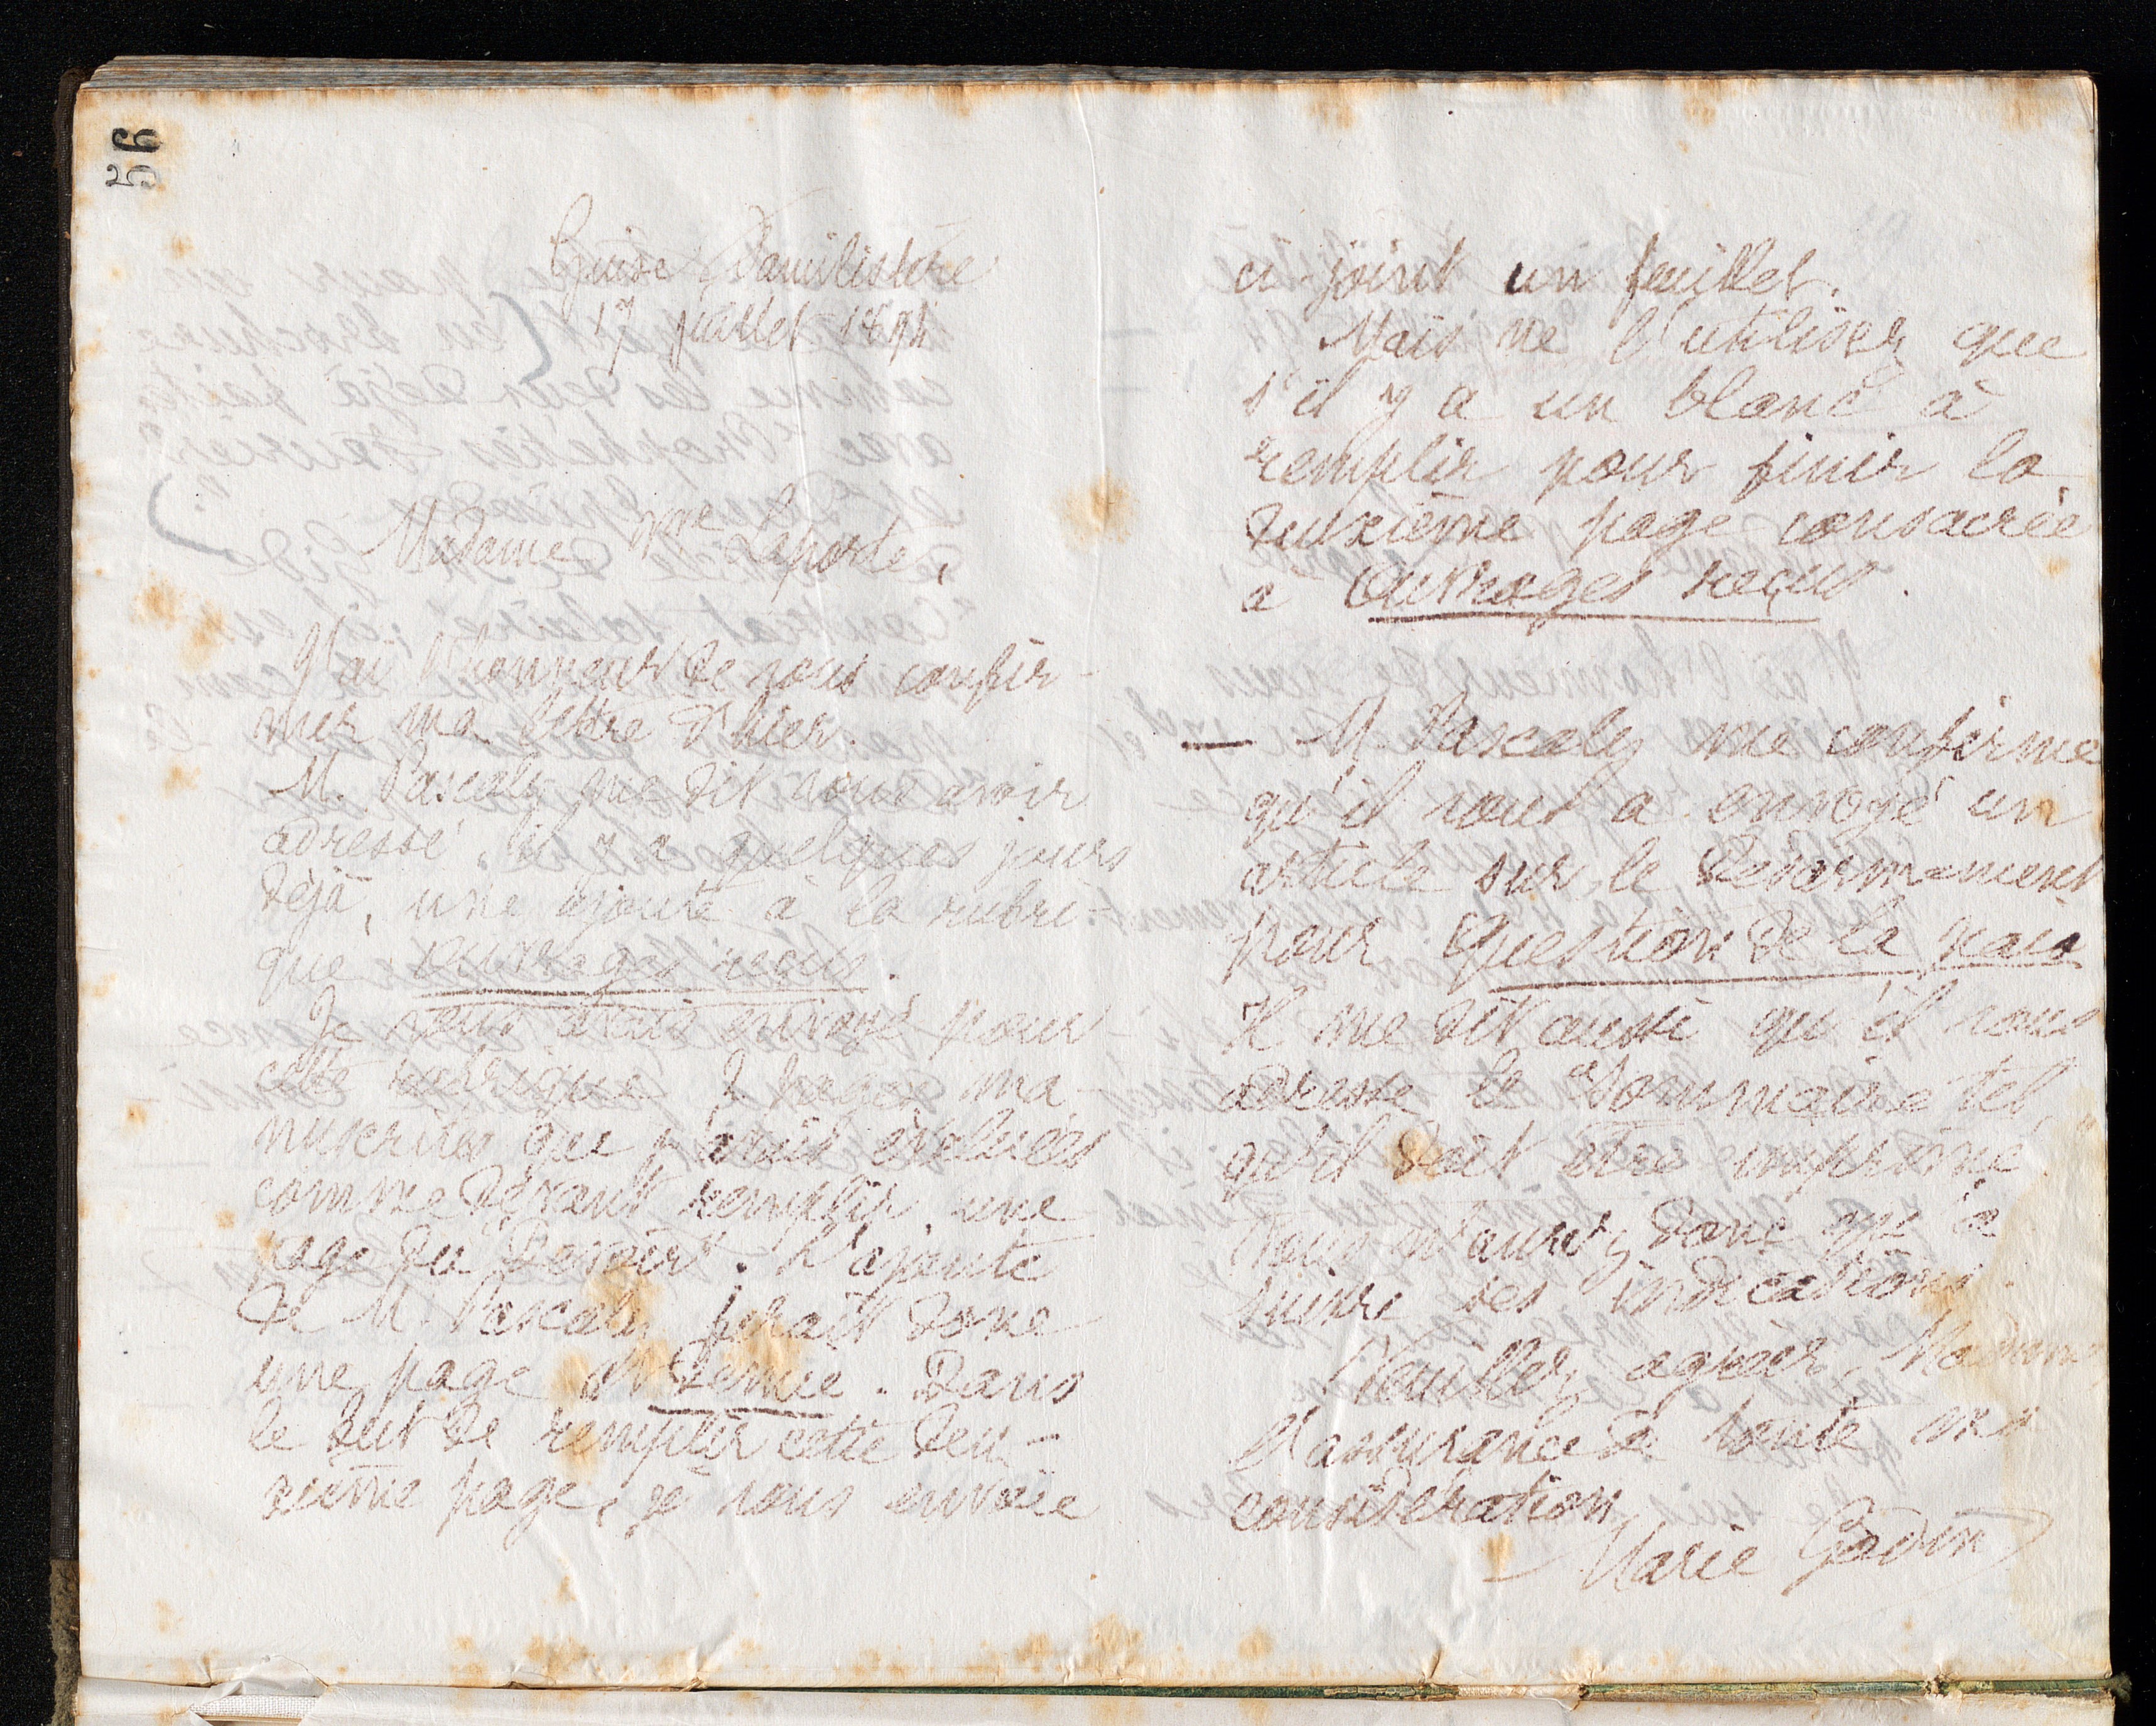 56
Guise Familistère
17 juillet 1894
Madame Vve Laporte,
J'ai l'honneur de vous confir-
mer ma lettre d'hier.
M. Pascaly me dit vous avoir
adressé, il y a quelques jours
déjà, une ajoute à la rubri-
que ouvrages reçus.
Je vous avais envoyé pour
cette rubrique pages ma-
nuscrites que j'avais évaluées
comme devant remplir une
page du "Devoir". L'ajoute
de M. Pascaly ferait donc
une page et demie. Dans
le but de remplir cette deu-
xième page, je vous envoie
ci-joint un feuillet.
Mais ne l'utilisez que
s'il y a un blanc à
remplir pour finir la
deuxième page consacrée
à ouvrages reçus.
— M. Pascaly me confirme
qu'il vous a envoyé un
article sur le Désarmement
pour Question de la paix
Il me dit aussi qu'il vous
adresse le "Sommaire tel
qu'il doit être imprimé"
Vous n'aurez donc qu'à
suivre ses indications.
Veuillez agréer, Madame
l'assurance de toute ma
considération
Marie Godin